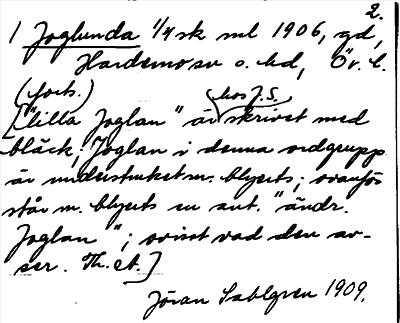 2.
1 Joglunda 1/4 sk ml 1906, gd,
Hardemo sn o. hd, Ör. l.
(forts.) hos J.S.
["lilla Joglan" är skrivet med
bläck; Joglan i denna ordgrupp
är understruket m. blyerts; ovanför
står m. blyerts en ant. "ändr.
Joglan"; ovisst vad den av-
ser. Th. A.]
Jöran Sahlgren 1909.